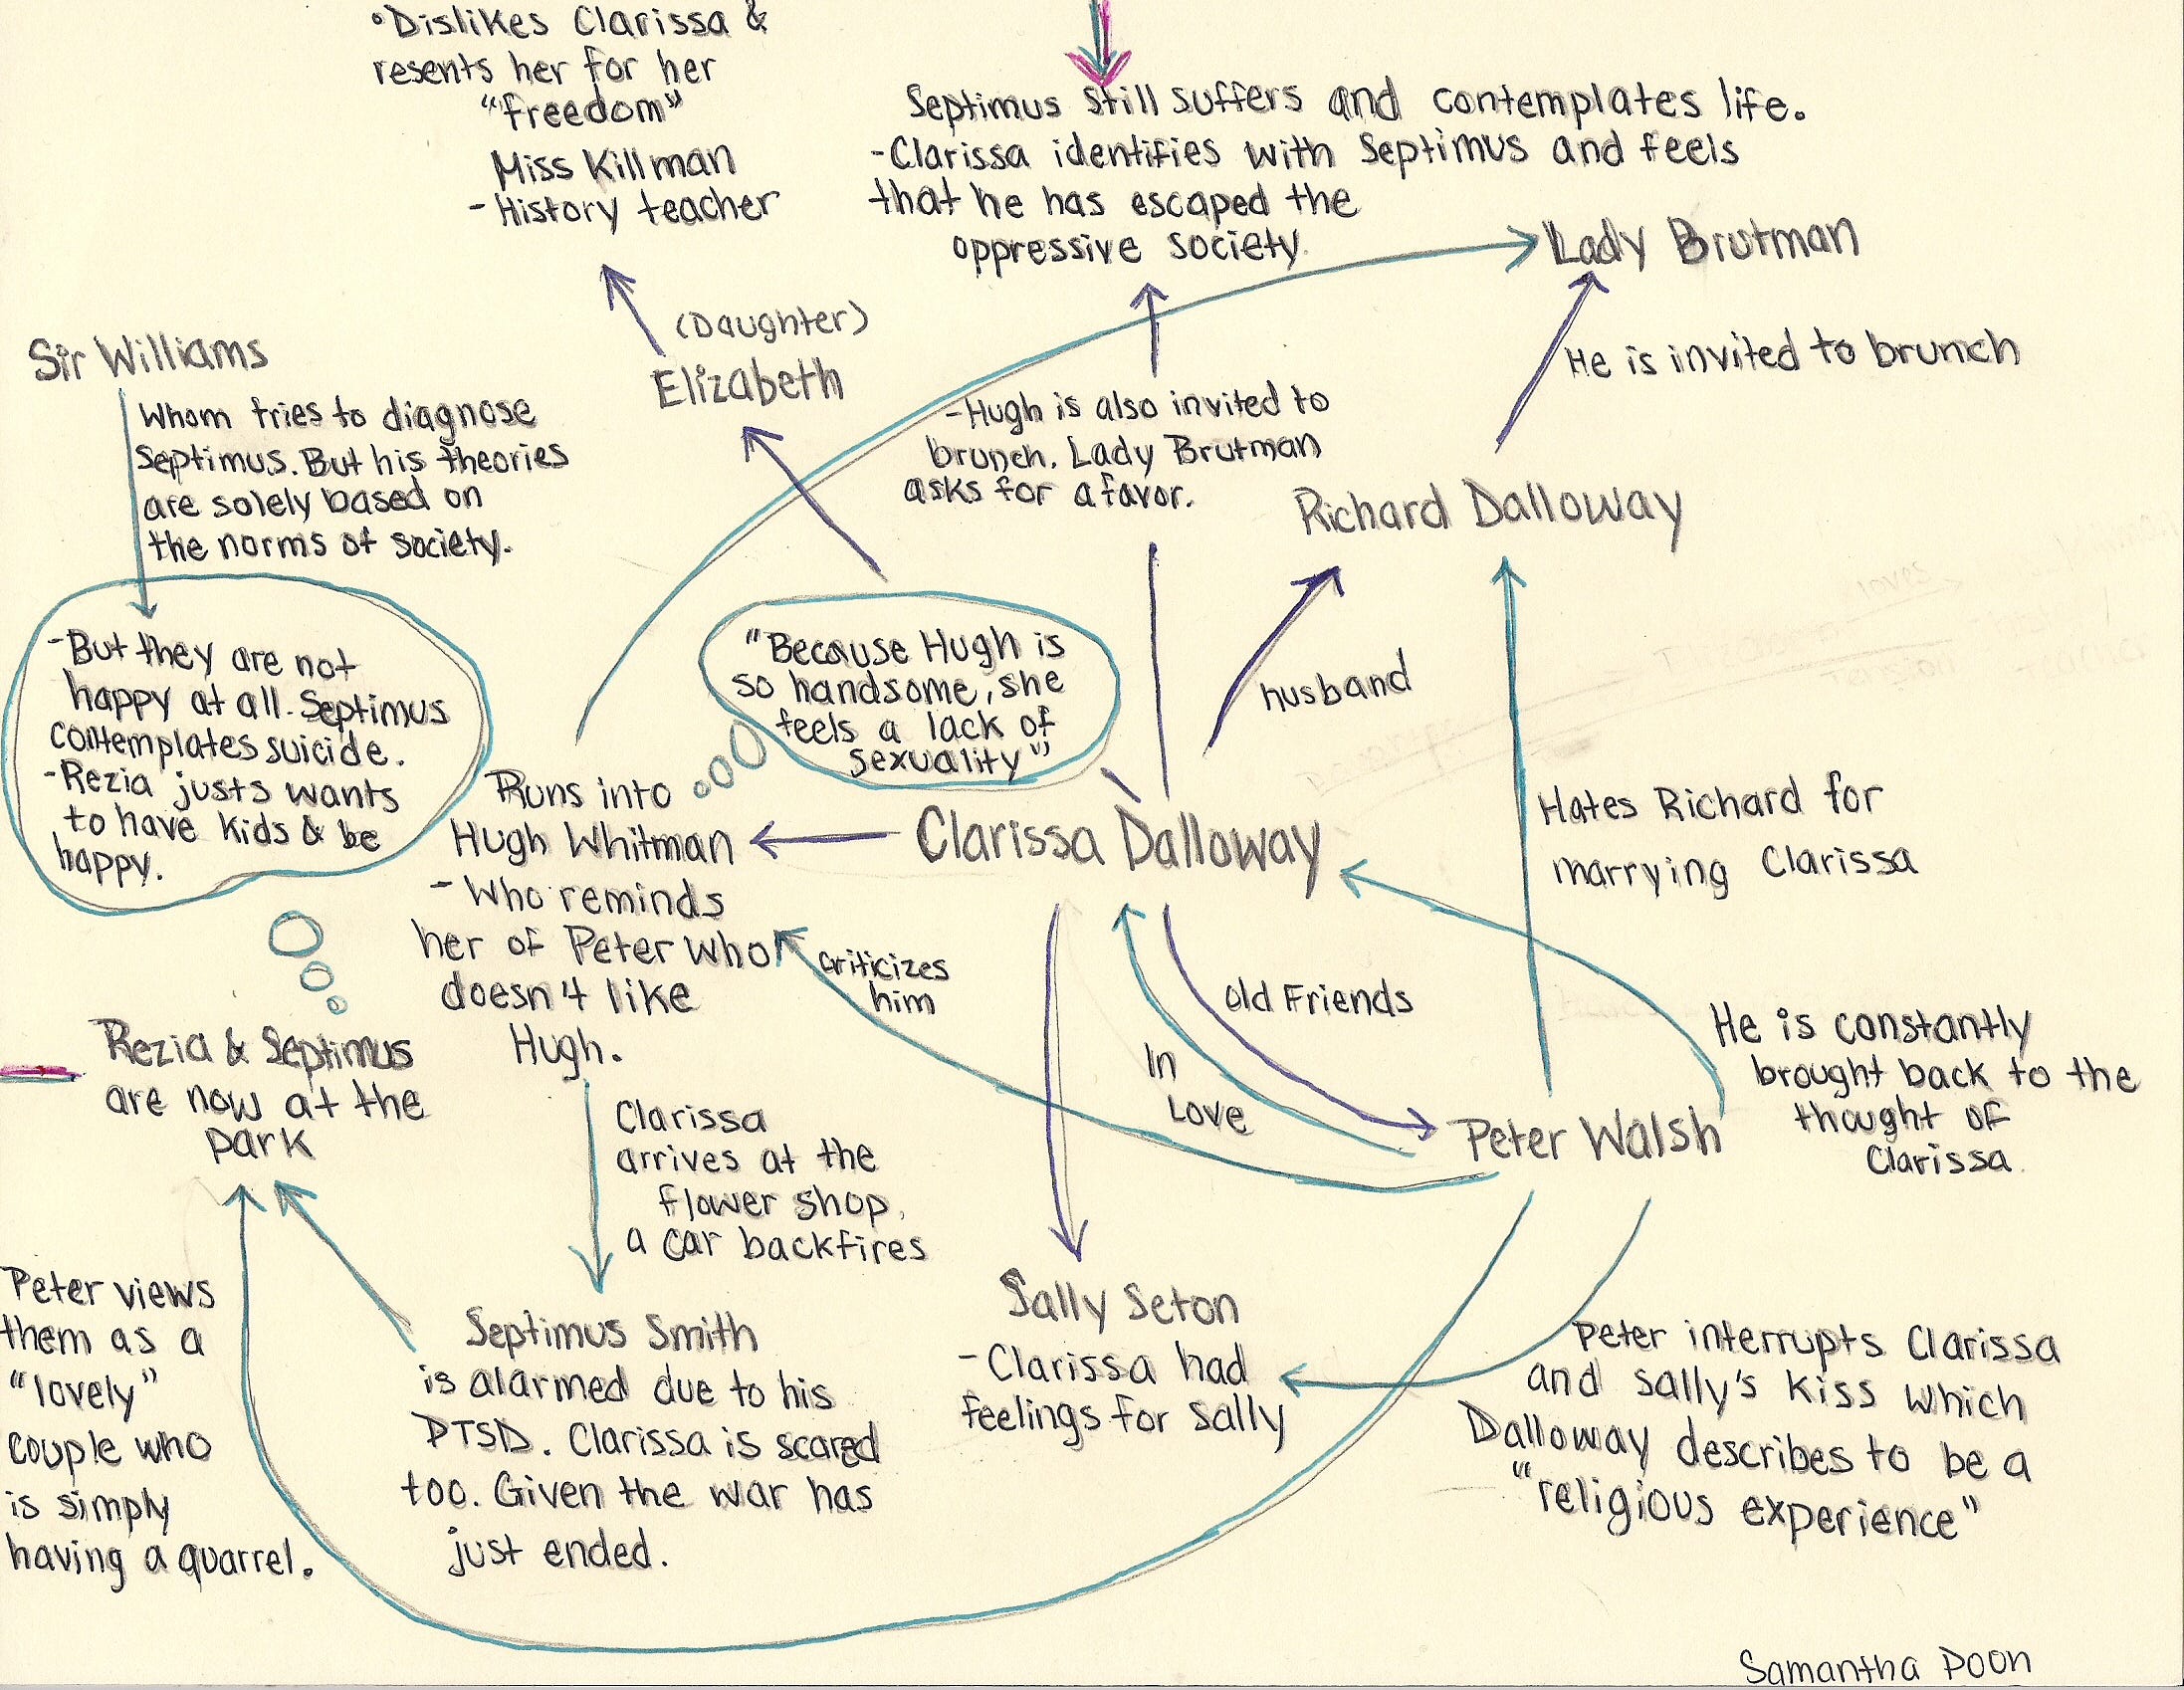 •Dislikes Clarissa &
resents her for her
"freedom"
Miss Killman
- History teacher
Septimus still suffers and contemplates life.
-Clarissa identifies with Septimus and feels
that he has escaped the
oppressive society.
Lady Brutman
(Daughter)
Elizabeth
He is invited to brunch
Sir Williams
Whom tries to diagnose
Septimus. But his theories
are solely based on
the norms of society.
-Hugh is also invited to
brunch. Lady Brutman
asks for a favor.
Richard Dalloway
-But they are not
happy at all. Septimus
contemplates suicide.
-Rezia justs wants
to have kids & be
happy.
"Because Hugh is
so handsome, she
feels a lack of
sexuality"
husband
Runs into
Hugh Whitman
- Who reminds
her of Peter who
doesn't like
Hugh.
Clarissa Dalloway
Hates Richard for
marrying Clarissa
criticizes
him
old Friends
In
Love
He is constantly
brought back to the
thought of
Clarissa.
Peter Walsh
Rezia & Septimus
are now at the
park
Clarissa
arrives at the
flower shop,
a car backfires
Peter views
them as a
"lovely"
couple who
is simply
having a quarrel.
Septimus Smith
is alarmed due to his
PTSD. Clarissa is scared
too. Given the war has
just ended.
Sally Seton
- Clarissa had
feelings for Sally
Peter interrupts Clarissa
and Sally's kiss which
Dalloway describes to be a
"religious experience"
Samantha Poon